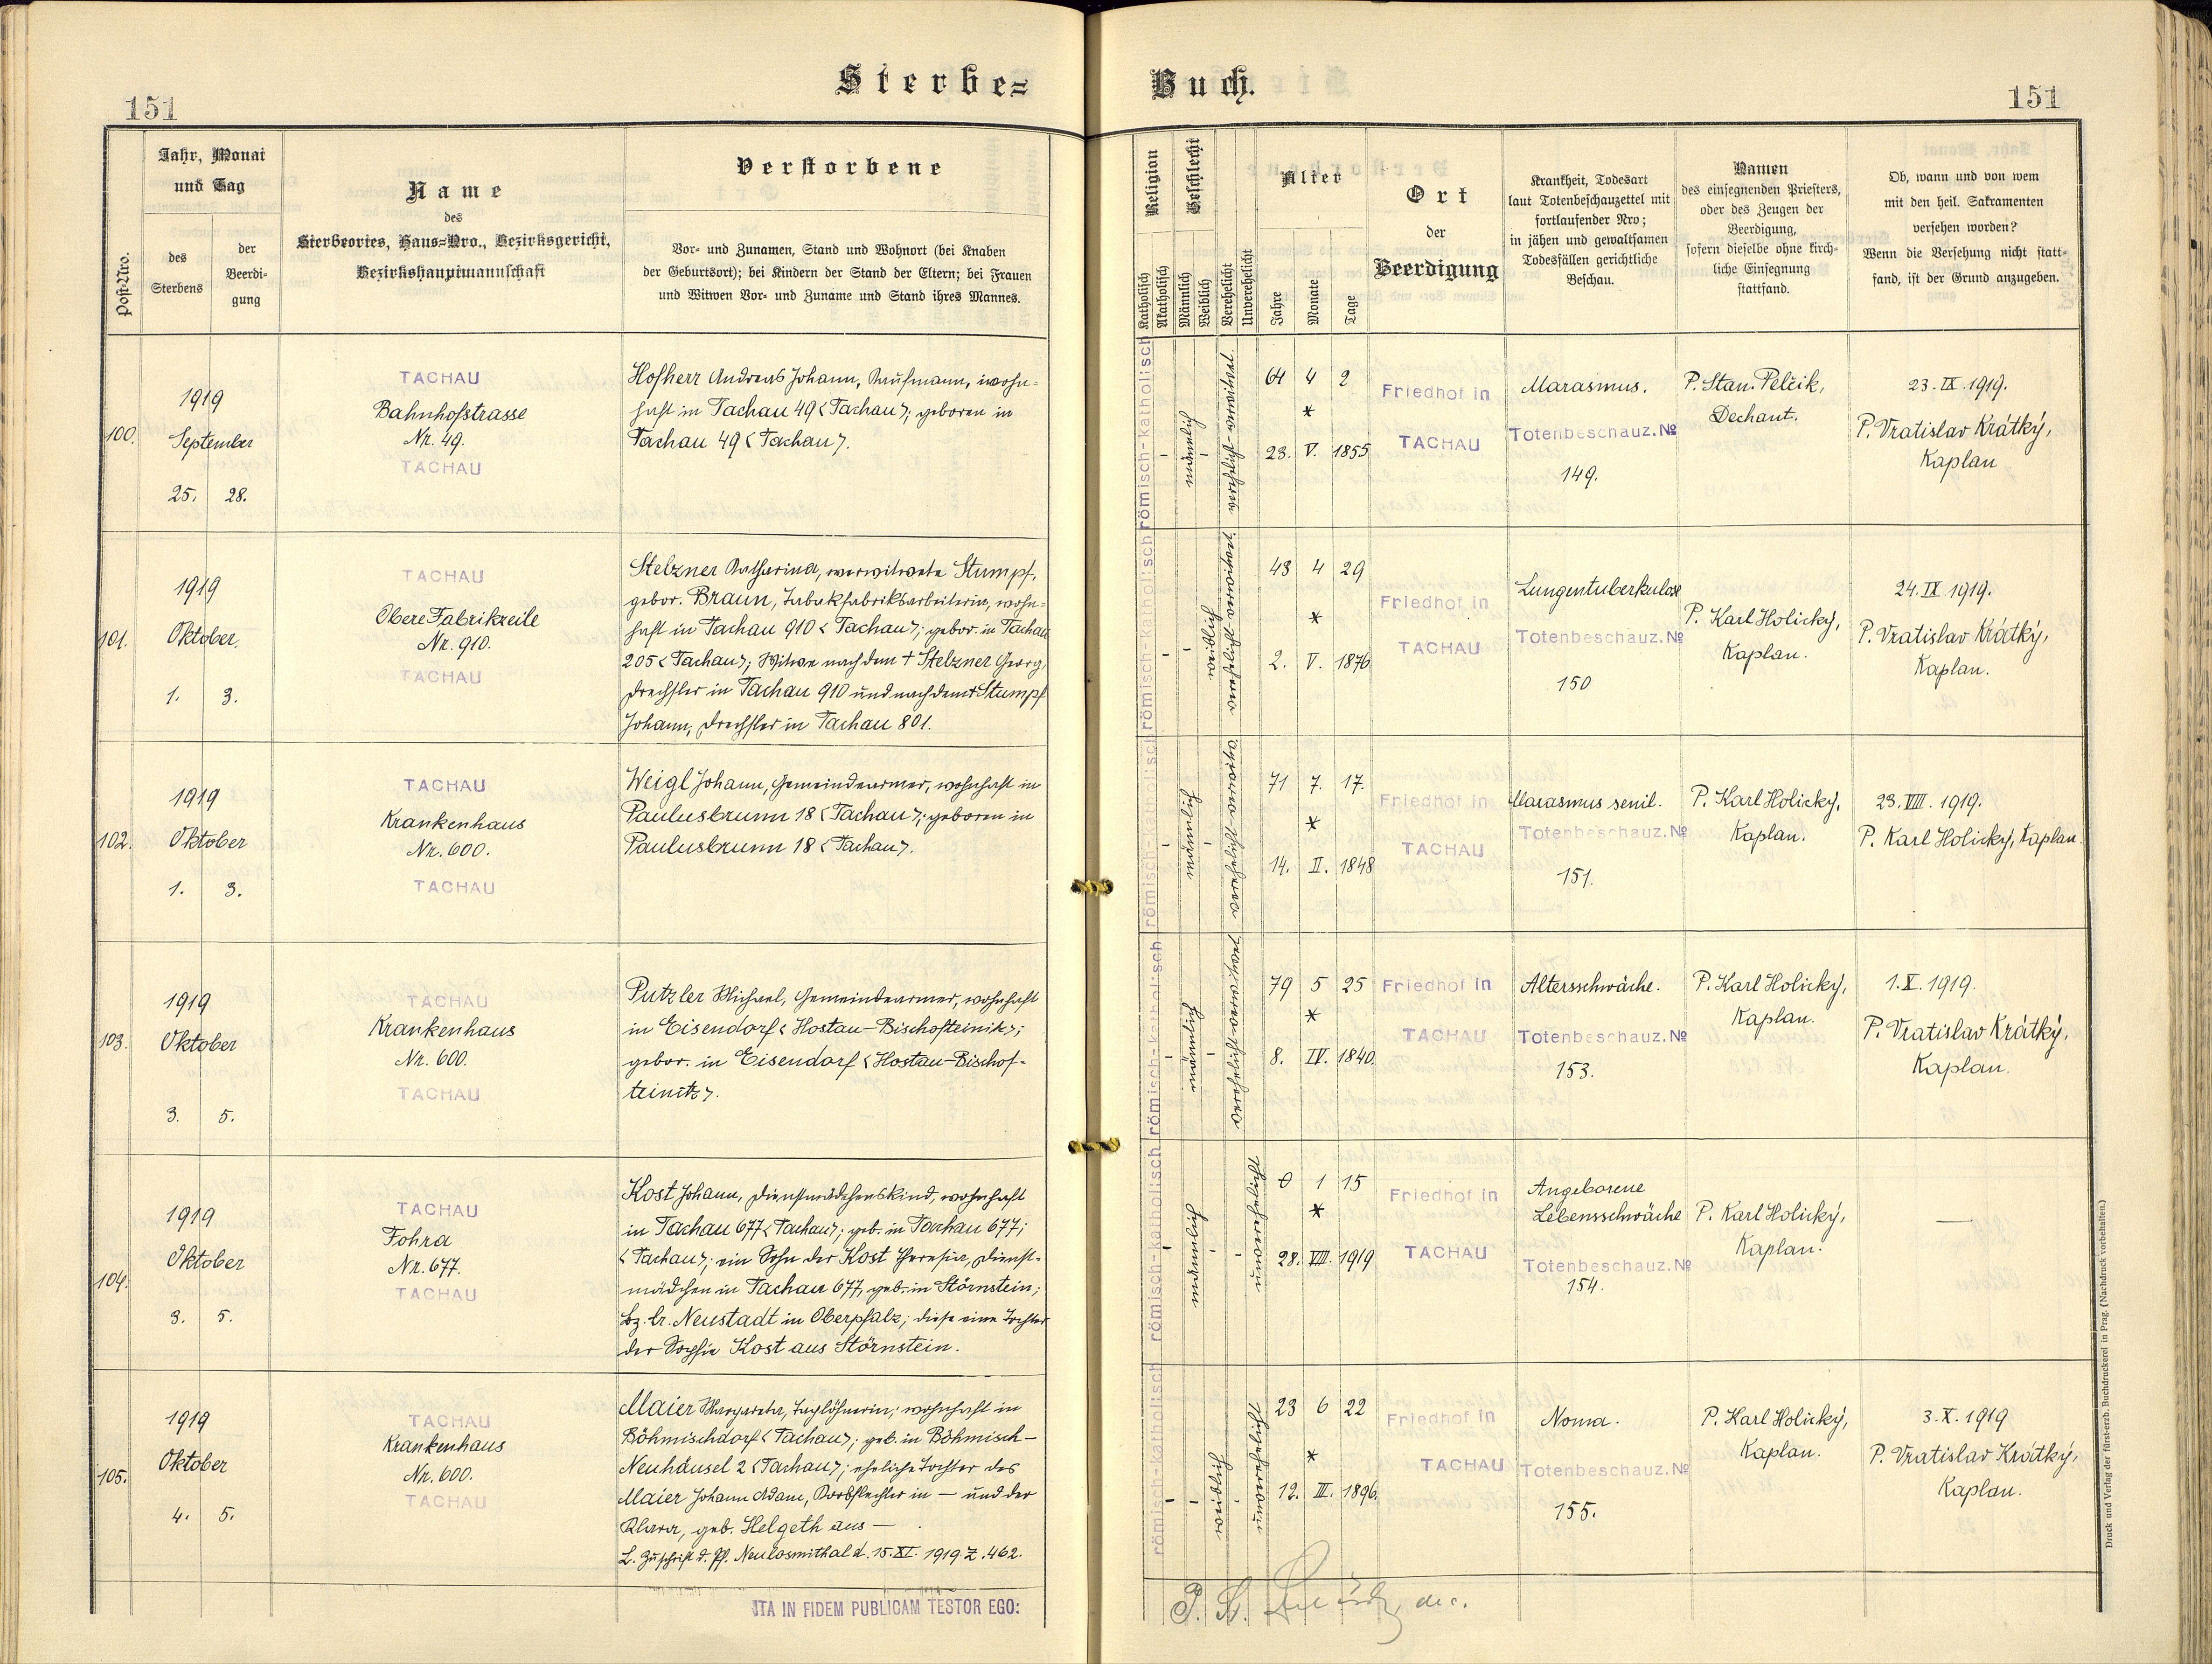 Sterbe=
151
Post-Nro.
Jahr, Monat
und Tag
des
Sterbens
der
Beerdi-
gung
Name
des
Sterbeortes, Haus=Nro., Bezirksgericht,
Bezirkshauptmannschaft
Verstorbene
Vor- und Zunamen, Stand und Wohnort (bei Knaben
der Geburtsort); bei Kindern der Stand der Eltern; bei Frauen
und Witwen Vor- und Zuname und Stand ihres Mannes.
100.
1919
September
25. 28.
TACHAU
Bahnhofstrasse
Nr. 49.
TACHAU
Hofherr Andreas Johann, Kaufmann, wohn=
haft in Tachau 49 <Tachau>; geboren in
Tachau 49 <Tachau>.
101.
1919
Oktober,
1. 3.
TACHAU
Obere Fabrikzeile
Nr. 910.
TACHAU
Stelzner Katharina, verwitwete Stumpf,
gebor. Braun, Tabakfabriksarbeiterin, wohn=
haft in Tachau 910 <Tachau>; gebor. in Tachau
205 <Tachau>; Witwe nach dem + Stelzner Georg,
Drechsler in Tachau 910 und nach dem + Stumpf
Johann, Drechsler in Tachau 801.
102.
1919
Oktober
1. 3.
TACHAU
Krankenhaus
Nr. 600.
TACHAU
Weigl Johann, Gemeindearmer, wohnhaft in
Paulusbrunn 18 <Tachau>; geboren in
Paulusbrunn 18 <Tachau>.
103.
1919
Oktober
3. 5.
TACHAU
Krankenhaus
Nr. 600.
TACHAU
Putzler Michael, Gemeindearmer, wohnhaft
in Eisendorf <Hostau-Bischofteinitz>;
gebor. in Eisendorf <Hostau-Bischof-
teinitz>.
104.
1919
Oktober
3. 5.
TACHAU
Fohra
Nr. 677.
TACHAU
Kost Johann, Dienstmädchenskind, wohnhaft
in Tachau 677 <Tachau>; geb. in Tachau 677;
<Tachau>; ein Sohn der Kost Theresia, Dienst-
mädchen in Tachau 677, geb. in Störnstein;
bz. br. Neustadt in Oberpfalz; diese eine Tochter
der Sophie Kost aus Störnstein.
105.
1919
Oktober
4. 5.
TACHAU
Krankenhaus
Nr. 600.
TACHAU
Maier Margareta, Taglöhnerin; wohnhaft in
Böhmischdorf <Tachau>; geb. in Böhmisch-
Neuhäusel 2 <Tachau>; eheliche Tochter des
Maier Johann Adam, Korbflechter in — und der
Klara, geb. Helgeth aus —.
L. Zuschrift d. Pf. Neulosimthal d. 15. XI. 1919 Z. 462.
ITA IN FIDEM PUBLICAM TESTOR EGO:
Buch.
151
Religion
Geschlecht
Katholisch
Akatholisch
Männlich
Weiblich
Verehelicht
Unverehelicht
Alter
Jahre
Monate
Tage
Ort
der
Beerdigung
Krankheit, Todesart
laut Totenbeschauzettel mit
fortlaufender Nro;
in jähen und gewaltsamen
Todesfällen gerichtliche
Beschau.
Namen
des einsegnenden Priesters,
oder des Zeugen der
Beerdigung,
sofern dieselbe ohne kirch-
liche Einsegnung
stattfand.
Ob, wann und von wem
mit den heil. Sakramenten
versehen worden?
Wenn die Versehung nicht statt-
fand, ist der Grund anzugeben.
römisch-katholisch
männlich
verehelicht-verwitwet
64 4 2
*
23. V. 1855
Friedhof in
TACHAU
Marasmus.
Totenbeschauz. №
149.
P. Stan. Pelčik,
Dechant.
23. IX. 1919.
P. Vratislav Krátký,
Kaplan
römisch-katholisch
weiblich
verehelicht-verwitwet
43 4 29
*
2. V. 1876
Friedhof in
TACHAU
Lungentuberkulose
Totenbeschauz. №
150
P. Karl Holický,
Kaplan.
24. IX 1919.
P. Vratislav Krátký,
Kaplan.
römisch-katholisch
männlich
71 7. 17.
*
14. II. 1848
Friedhof in
TACHAU
Marasmus senil.
Totenbeschauz. №
151.
P. Karl Holický,
Kaplan.
23. VIII. 1919.
P. Karl Holický, Kaplan.
römisch-katholisch
männlich
verehelicht-verwitwet
79 5 25
*
8. IV. 1840.
Friedhof in
TACHAU
Altersschwäche.
Totenbeschauz. №
153.
P. Karl Holický,
Kaplan.
1. X. 1919.
P. Vratislav Krátký,
Kaplan.
römisch-katholisch
männlich
unverehelicht
0 1 15
*
28. VIII. 1919
Friedhof in
TACHAU
Angeborene
Lebensschwäche
Totenbeschauz. №
154.
P. Karl Holický,
Kaplan.
—
römisch-katholisch
weiblich
unverehelicht
23 6 22
*
12. III. 1896.
Friedhof in
TACHAU
Noma.
Totenbeschauz. №
155.
P. Karl Holický,
Kaplan.
3. X. 1919
P. Vratislav Krátký,
Kaplan.
Druck und Verlag der fürst-erzb. Buchdruckerei in Prag. (Nachdruck vorbehalten.)